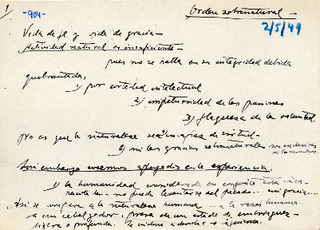 1
-904-
Orden sobrenatural -
2/5/49
Vida de fe y vida de gracia -
Actividad natural es insuficiente -
pues no se halla en su integridad debida
quebrantada,
1) por cortedad intelectual
2) impetuosidad de las pasiones
3) flaqueza de la voluntad.
No es que la naturaleza sea incapaz de virtud -
o) ni las gracias sobrenaturales son exclusivas
Sin embargo creemos apegados en la experiencia.
1) la humanidad considerada en conjunto está
no puede levantarse del pecado - sin gracia...
Así se compara a la naturaleza humana
a un cabalgador, presa de un estado de embriaguez
ligera o profunda, se inclina a derecha o izquierda.